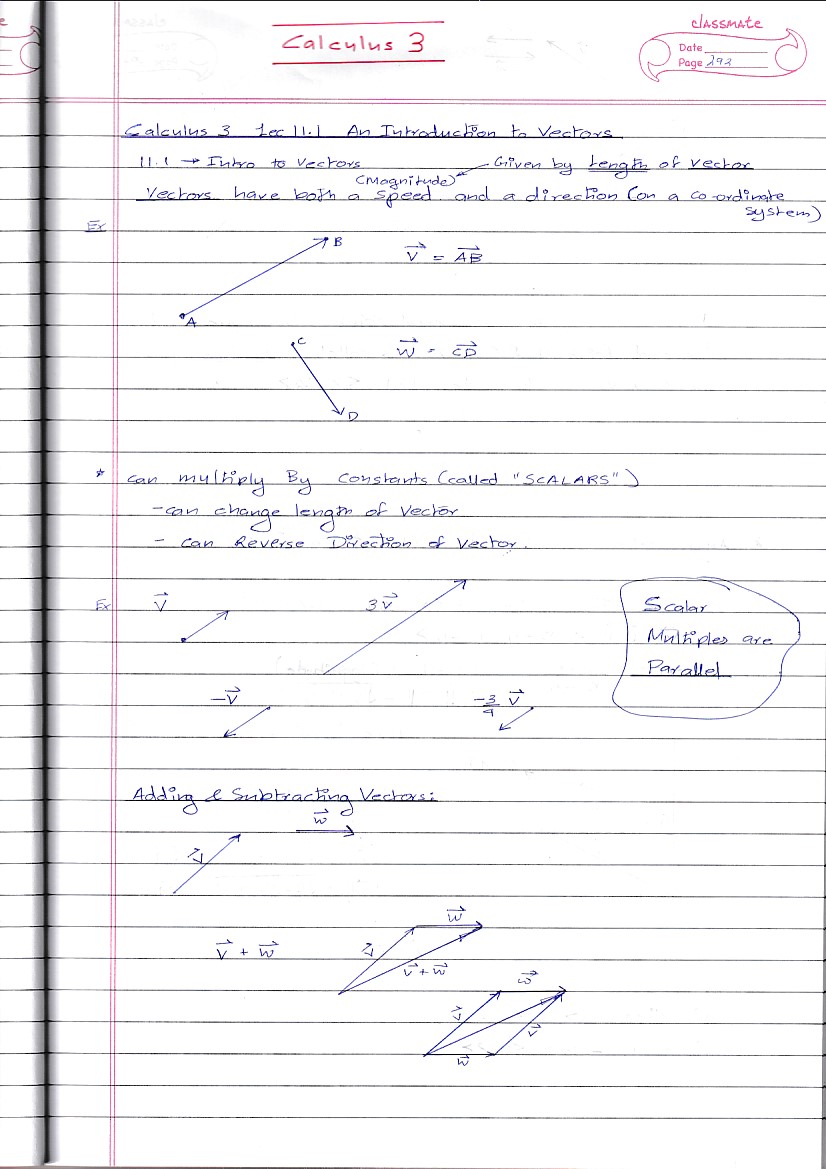 classmate
Date
Page 292
Calculus 3
Calculus 3 Lec 11.1 An Introduction to Vectors
11.1 → Intro to Vectors Given by Length of vector
(Magnitude)
Vectors have both a speed and a direction (on a co-ordinate
system)
Ex
B
V = AB
A
C
W = CD
D
* can multiply By constants (called "SCALARS")
-can change length of vector
- can Reverse Direction of vector.
Ex V 3V
Scalar
Multiples are
Parallel
-V -3/4 V
Adding & Subtracting Vectors:
w
V
w
V + w V V + w
w
V V
w